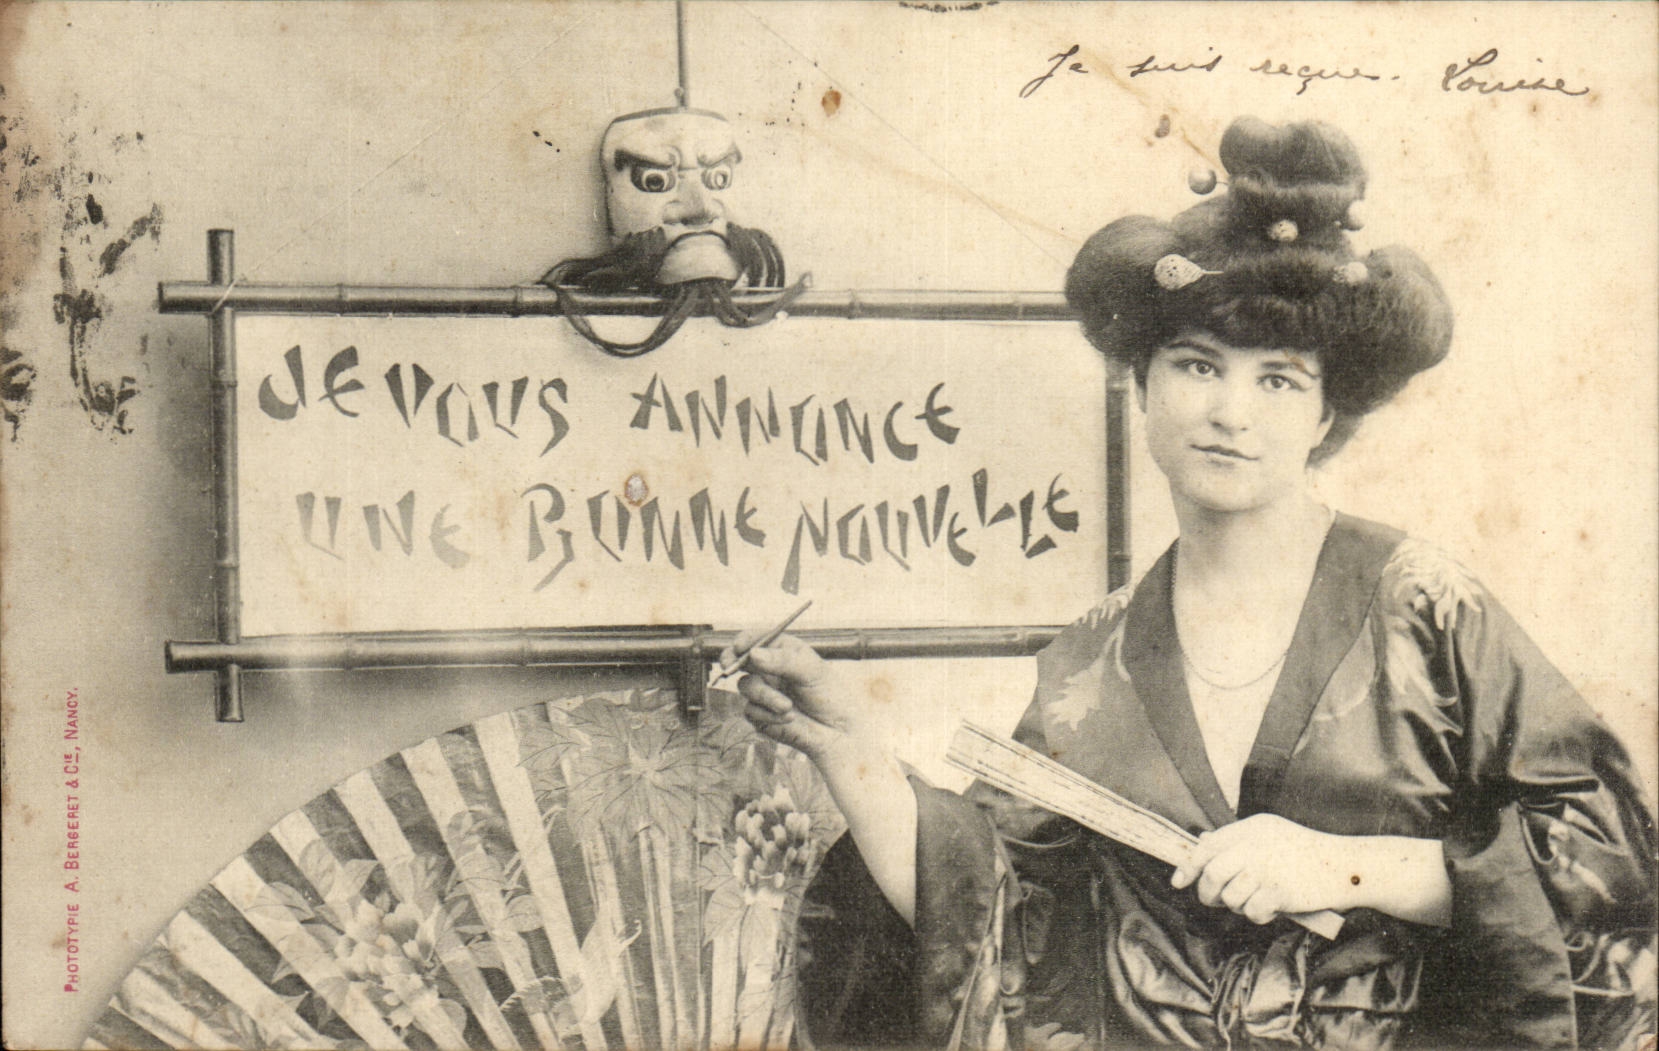 Je suis reçue. Louise
JE VOUS ANNONCE
UNE BONNE NOUVELLE
PHOTOTYPIE A. BERGERET & CIE, NANCY.